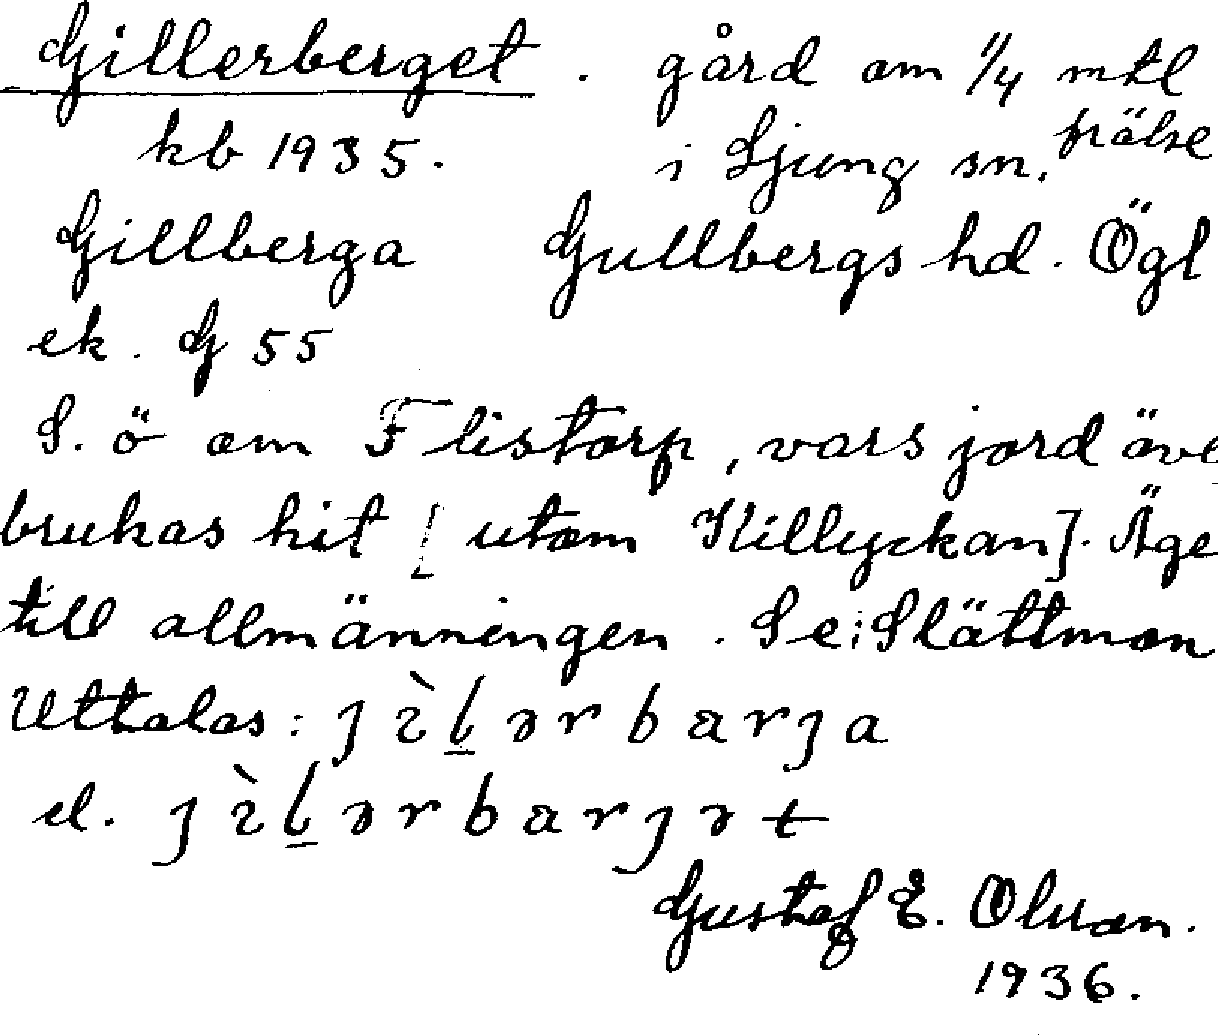 Gillerberget . gård om 1/4 mtl
kb 1935. i Ljung sn. frälse
Gillberga Gullbergs hd. Ögl
ek. G 55
S. ö om Flistorp, vars jord äve
brukas hit [utom Killyckan]. Äge
till allmänningen. Se: Slättmon
Uttalas: ȷ ì l̲ ə r b a r ȷ a
el. ȷ ì l̲ ə r b a r ȷ ə t
Gustaf E. Olsson.
1936.